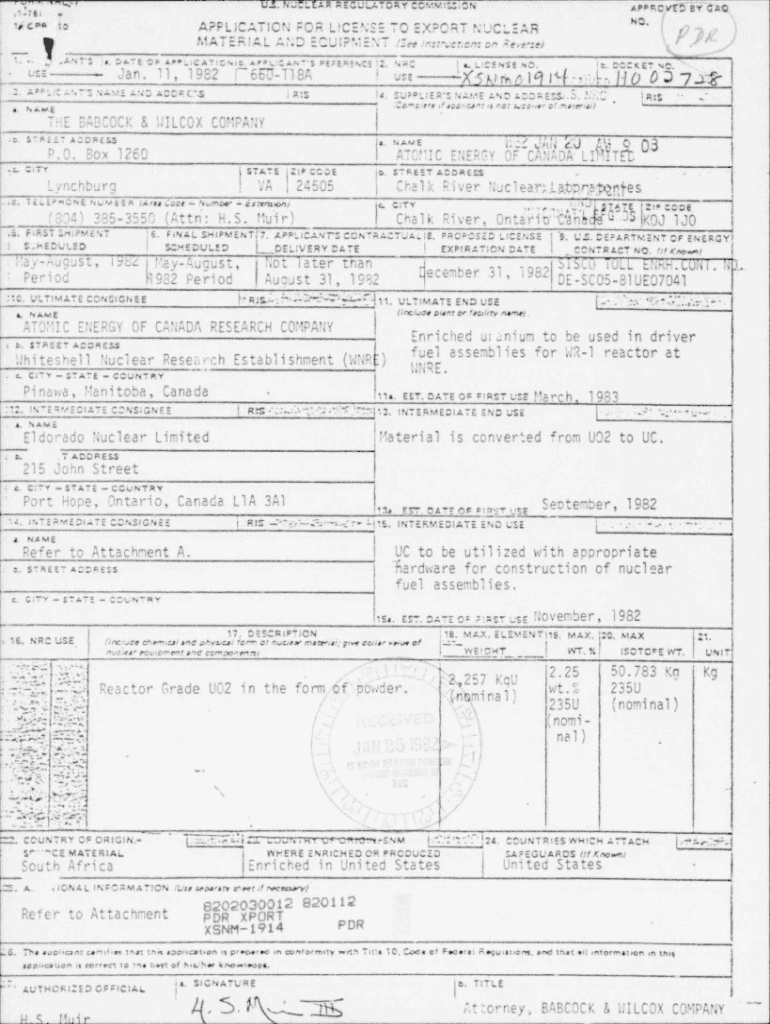 U.S. NUCLEAR REGULATORY COMMISSION
APPROVED BY GAO
NO.
PDR
APPLICATION FOR LICENSE TO EXPORT NUCLEAR
MATERIAL AND EQUIPMENT (See Instructions on Reverse)
1. USE
a. DATE OF APPLICATION
Jan. 11, 1982
b. APPLICANT'S REFERENCE
660-118A
2. NRC USE
a. LICENSE NO.
XSNM01914
b. DOCKET NO.
11002728
3. APPLICANT'S NAME AND ADDRESS
RIS
a. NAME
THE BABCOCK & WILCOX COMPANY
b. STREET ADDRESS
P.O. Box 1260
c. CITY
Lynchburg
STATE
VA
ZIP CODE
24505
d. TELEPHONE NUMBER (Area Code - Number - Extension)
(804) 385-3550 (Attn: H.S. Muir)
4. SUPPLIER'S NAME AND ADDRESS
RIS
(Complete if applicant is not supplier of material)
JAN 20 9 03
a. NAME
ATOMIC ENERGY OF CANADA LIMITED
b. STREET ADDRESS
Chalk River Nuclear Laboratories
c. CITY
Chalk River, Ontario Canada
STATE
ZIP CODE
K0J 1J0
5. FIRST SHIPMENT
SCHEDULED
May-August, 1982
Period
6. FINAL SHIPMENT
SCHEDULED
May-August,
1982 Period
7. APPLICANT'S CONTRACTUAL
DELIVERY DATE
Not later than
August 31, 1982
8. PROPOSED LICENSE
EXPIRATION DATE
December 31, 1982
9. U.S. DEPARTMENT OF ENERGY
CONTRACT NO. (If Known)
SISCO TOLL ENRH.CONT. NO.
DE-SC05-81UE07041
10. ULTIMATE CONSIGNEE
RIS
a. NAME
ATOMIC ENERGY OF CANADA RESEARCH COMPANY
b. STREET ADDRESS
Whiteshell Nuclear Research Establishment (WNRE)
c. CITY - STATE - COUNTRY
Pinawa, Manitoba, Canada
11. ULTIMATE END USE
(Include plant or facility name)
Enriched uranium to be used in driver
fuel assemblies for WR-1 reactor at
WNRE.
11a. EST. DATE OF FIRST USE March, 1983
12. INTERMEDIATE CONSIGNEE
RIS
a. NAME
Eldorado Nuclear Limited
b. T ADDRESS
215 John Street
c. CITY - STATE - COUNTRY
Port Hope, Ontario, Canada L1A 3A1
13. INTERMEDIATE END USE
Material is converted from UO2 to UC.
13a. EST. DATE OF FIRST USE September, 1982
14. INTERMEDIATE CONSIGNEE
RIS
a. NAME
Refer to Attachment A.
b. STREET ADDRESS
c. CITY - STATE - COUNTRY
15. INTERMEDIATE END USE
UC to be utilized with appropriate
hardware for construction of nuclear
fuel assemblies.
15a. EST. DATE OF FIRST USE November, 1982
16. NRC USE
17. DESCRIPTION
(Include chemical and physical form of nuclear material; give dollar value of
nuclear equipment and components)
18. MAX. ELEMENT
WEIGHT
19. MAX.
WT. %
20. MAX
ISOTOPE WT.
21.
UNIT
Reactor Grade UO2 in the form of powder.
2,257 KgU
(nominal)
2.25
wt.%
235U
(nomi-
nal)
50.783 Kg
235U
(nominal)
Kg
RECEIVED
JAN 25 1982
22. COUNTRY OF ORIGIN-
SOURCE MATERIAL
South Africa
23. COUNTRY OF ORIGIN-SNM
WHERE ENRICHED OR PRODUCED
Enriched in United States
24. COUNTRIES WHICH ATTACH
SAFEGUARDS (If Known)
United States
25. A IONAL INFORMATION (Use separate sheet if necessary)
Refer to Attachment
8202030012 820112
PDR XPORT
XSNM-1914 PDR
26. The applicant certifies that this application is prepared in conformity with Title 10, Code of Federal Regulations, and that all information in this
application is correct to the best of his/her knowledge.
27. AUTHORIZED OFFICIAL
H.S. Muir
a. SIGNATURE
H. S. Muir III
b. TITLE
Attorney, BABCOCK & WILCOX COMPANY